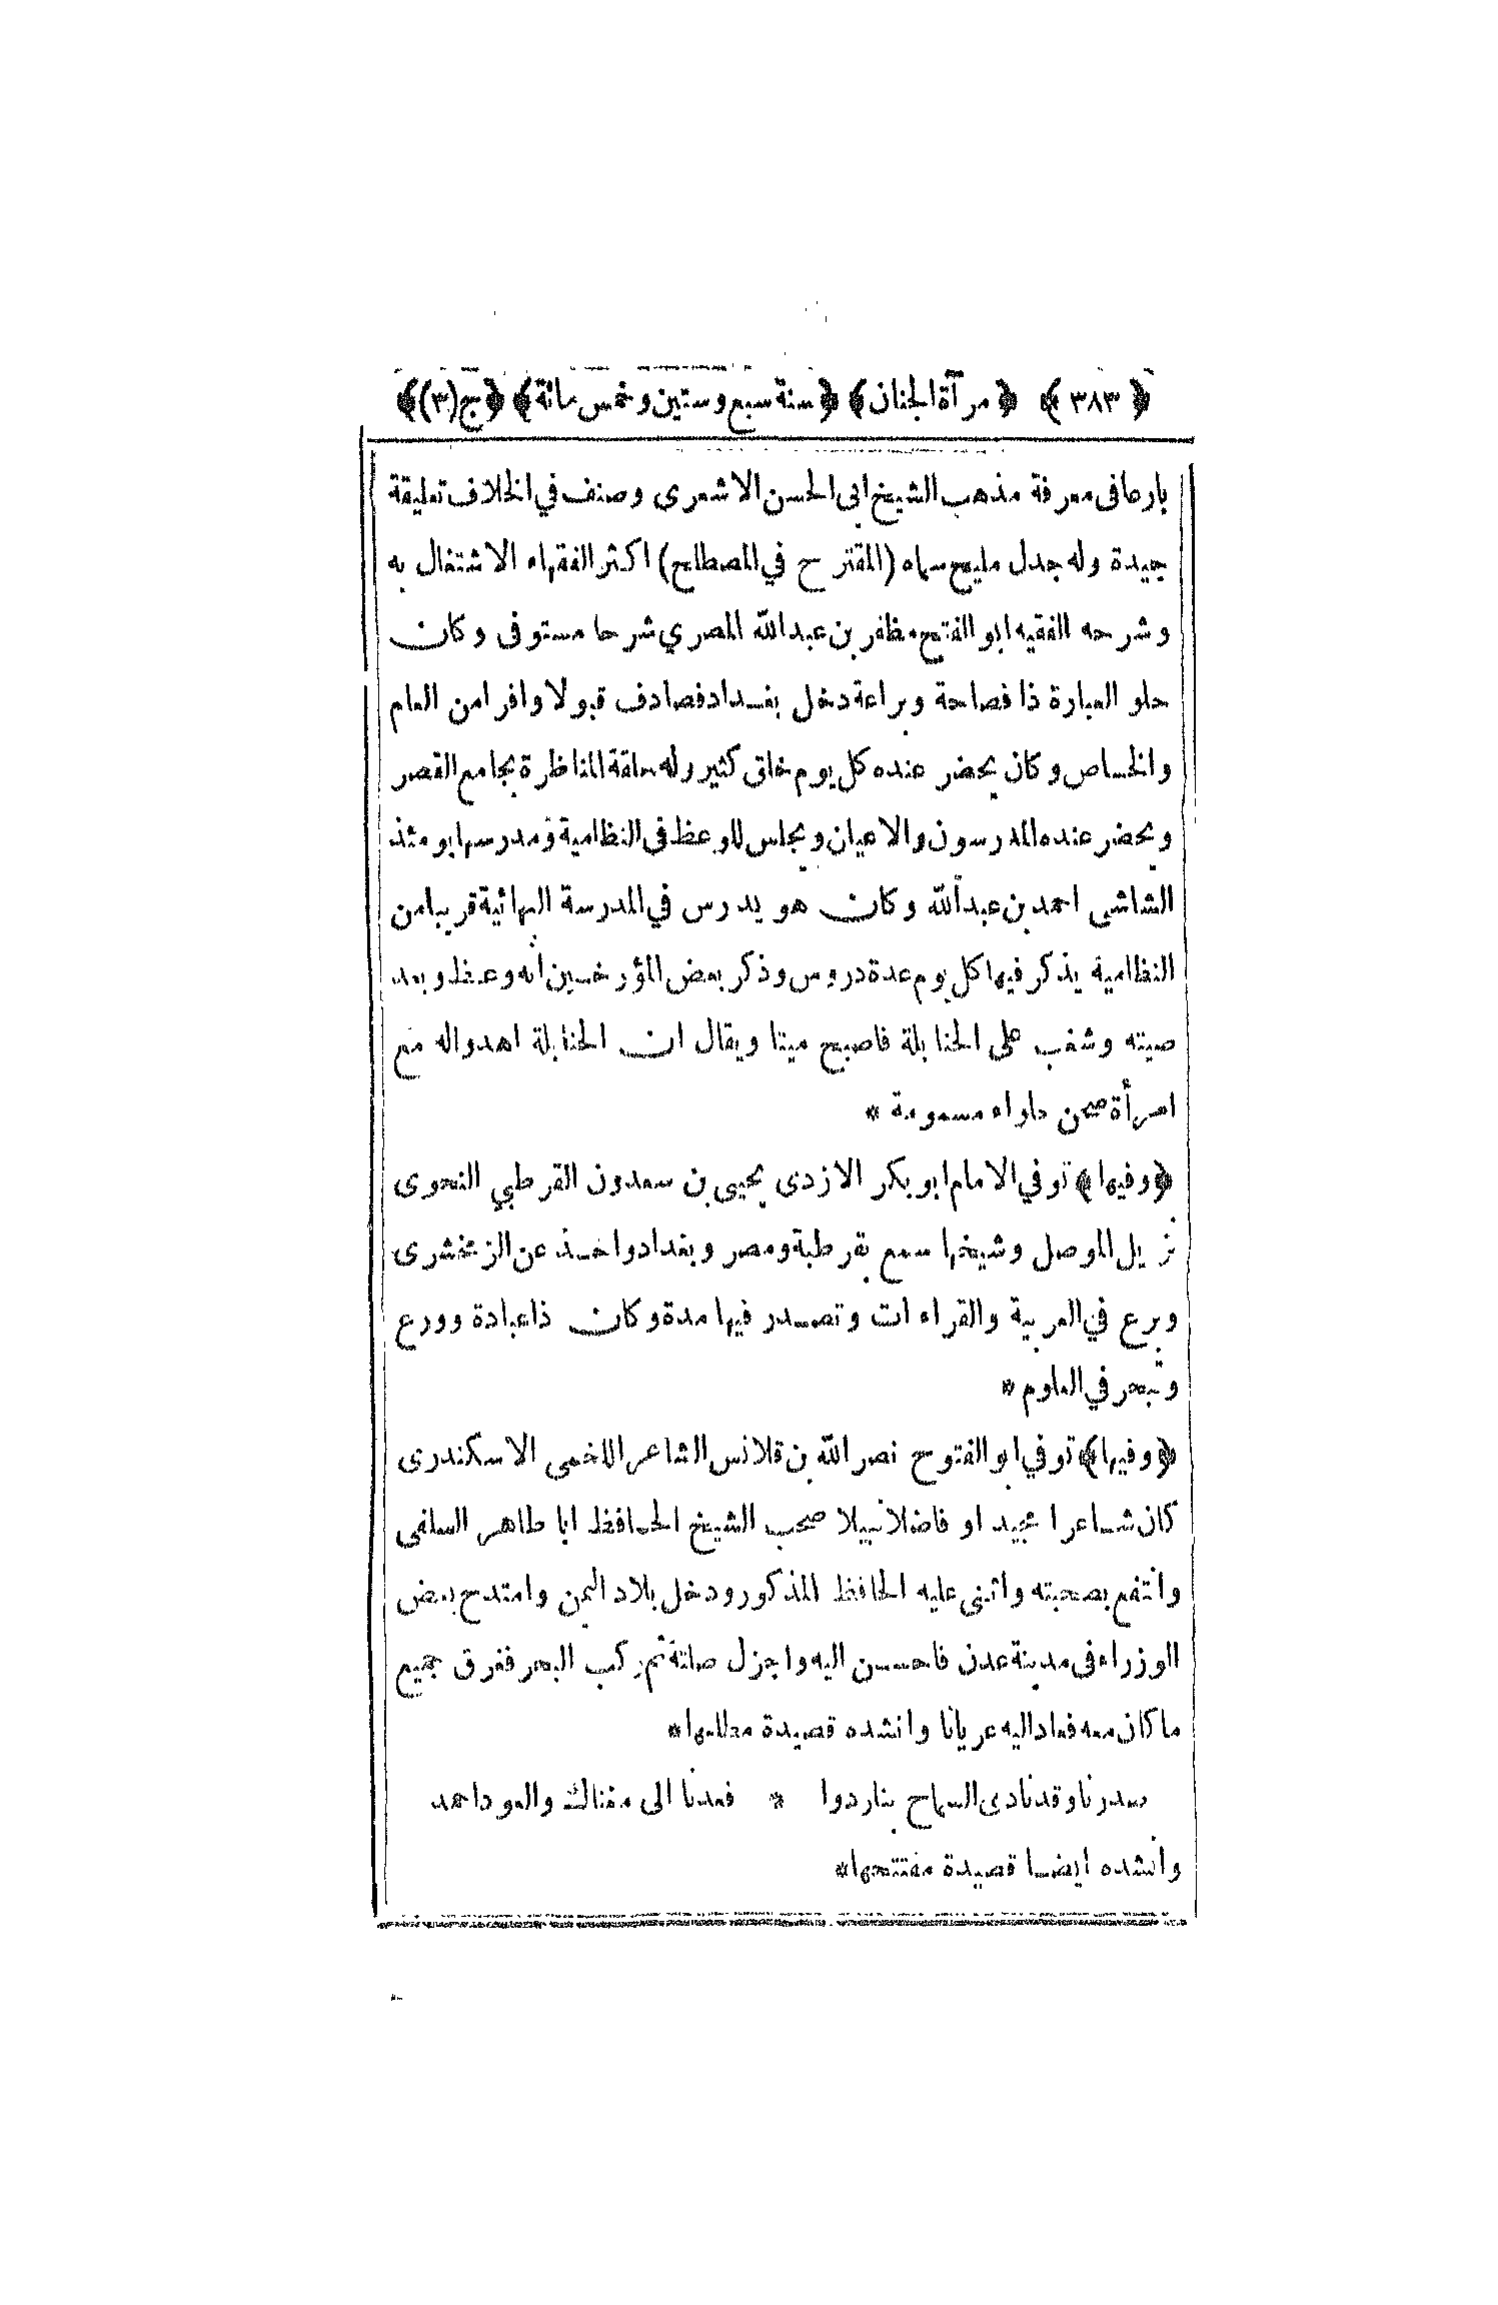 ﴿ ٣٨٣ ﴾ ﴿ مرآة الجنان ﴾ ﴿ سنة سبع وستين وخمس مائة ﴾ ﴿ ج (٣) ﴾
بارعا فى معرفة مذهب الشيخ ابى الحسن الاشعرى وصنف في الخلاف تعليقة
جيدة وله جدل مليح سماه (المقترح في المصطلح) اكثر الفقهاء الاشتغال به
وشرحه الفقيه ابو الفتح مظفر بن عبد الله المصري شرحا مستوفى وكان
حلو العبارة ذا فصاحة وبراعة دخل بغداد فصادف قبولا وافرا من العام
والخاص وكان يحضر عنده كل يوم خلق كثير وله حلقة المناظرة بجامع القصر
ويحضر عنده المدرسون والاعيان ويجلس للوعظ فى النظامية ومدرسها يومئذ
الشاشى احمد بن عبد الله وكان هو يدرس في المدرسة البهائية قريبا من
النظامية يذكر فيها كل يوم عدة دروس وذكر بعض المؤرخين انه وعظ وبعد
صيته وشغب على الحنابلة فاصبح ميتا ويقال ان الحنابلة اهدوا له مع
امرأة صحن حلواء مسمومة *
﴿ وفيها ﴾ توفي الامام ابو بكر الازدى يحيى بن سعدون القرطبي النحوى
نزيل الموصل وشيخها سمع بقرطبة ومصر وبغداد واخذ عن الزمخشرى
وبرع في العربية والقراءات وتصدر فيها مدة وكان ذا عبادة وورع
وتبحر في العلوم *
﴿ وفيها ﴾ توفي ابو الفتوح نصر الله بن قلانس الشاعر اللخمى الاسكندرى
كان شاعرا مجيدا و فاضلا نبيلا صحب الشيخ الحافظ ابا طاهر السلفى
وانتفع بصحبته واثنى عليه الحافظ المذكور ودخل بلاد اليمن وامتدح بعض
الوزراء فى مدينة عدن فاحسن اليه واجزل صلته ثم ركب البحر فغرق جميع
ما كان معه فعاد اليه عريانا وانشده قصيدة مطلعها *
صدرنا وقد نادى السماح بنا ردوا * فعدنا الى مغناك والعود احمد
وانشده ايضا قصيدة مفتتحها *